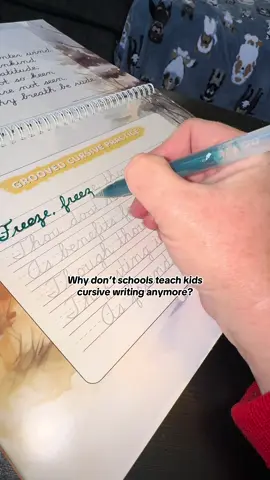 ankind
atitude
not so keen
are not seen
breath be rude
GROOVED CURSIVE PRACTICE
Freeze, freez
Thou dos
As benefits
Though tho
As frien
Why don't schools teach kids
cursive writing anymore?